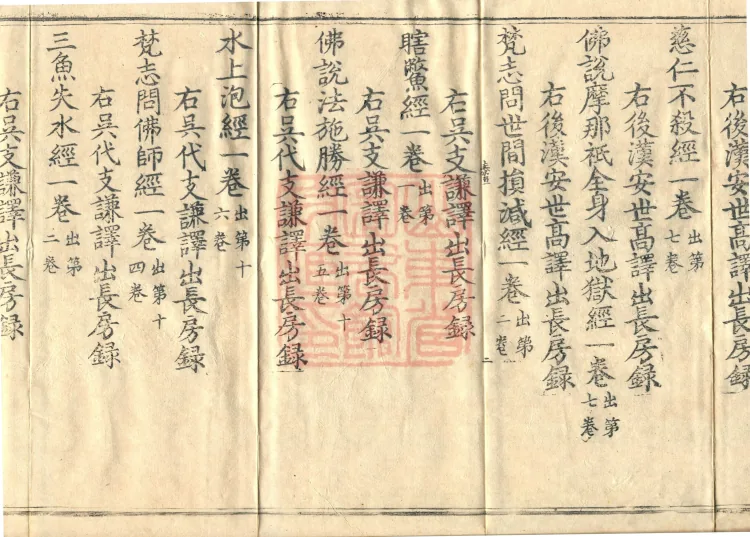 右後漢安世高譯出長房録
慈仁不殺經一卷出第七卷
右後漢安世高譯出長房録
佛說摩那祇全身入地獄經一卷出第七卷
右後漢安世高譯出長房録
梵志問世間損減經一卷出第二卷
二
右吳支謙譯出長房録
瞎鱉經一卷出第一卷
右吳支謙譯出長房録
佛說法施勝經一卷出第十五卷
右吳代支謙譯出長房録
水上泡經一卷出第十六卷
右吳代支謙譯出長房録
梵志問佛師經一卷出第十四卷
右吳代支謙譯出長房録
三魚失水經一卷出第二卷
右吳支謙譯出長房録